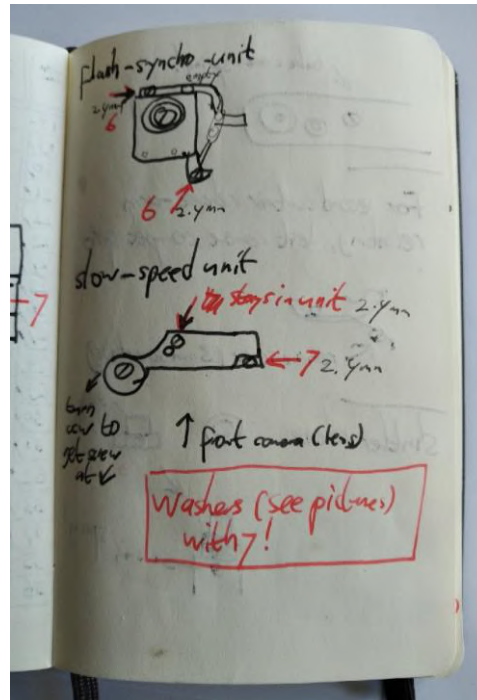 flash-syncho-unit
empty
2.4mm
6
6 2.4mm
slow-speed unit
stays in unit 2.4mm
7
7 2.4mm
turn
cew to
get screw
at
↑ front camera (lens)
Washers (see pictures)
with 7!